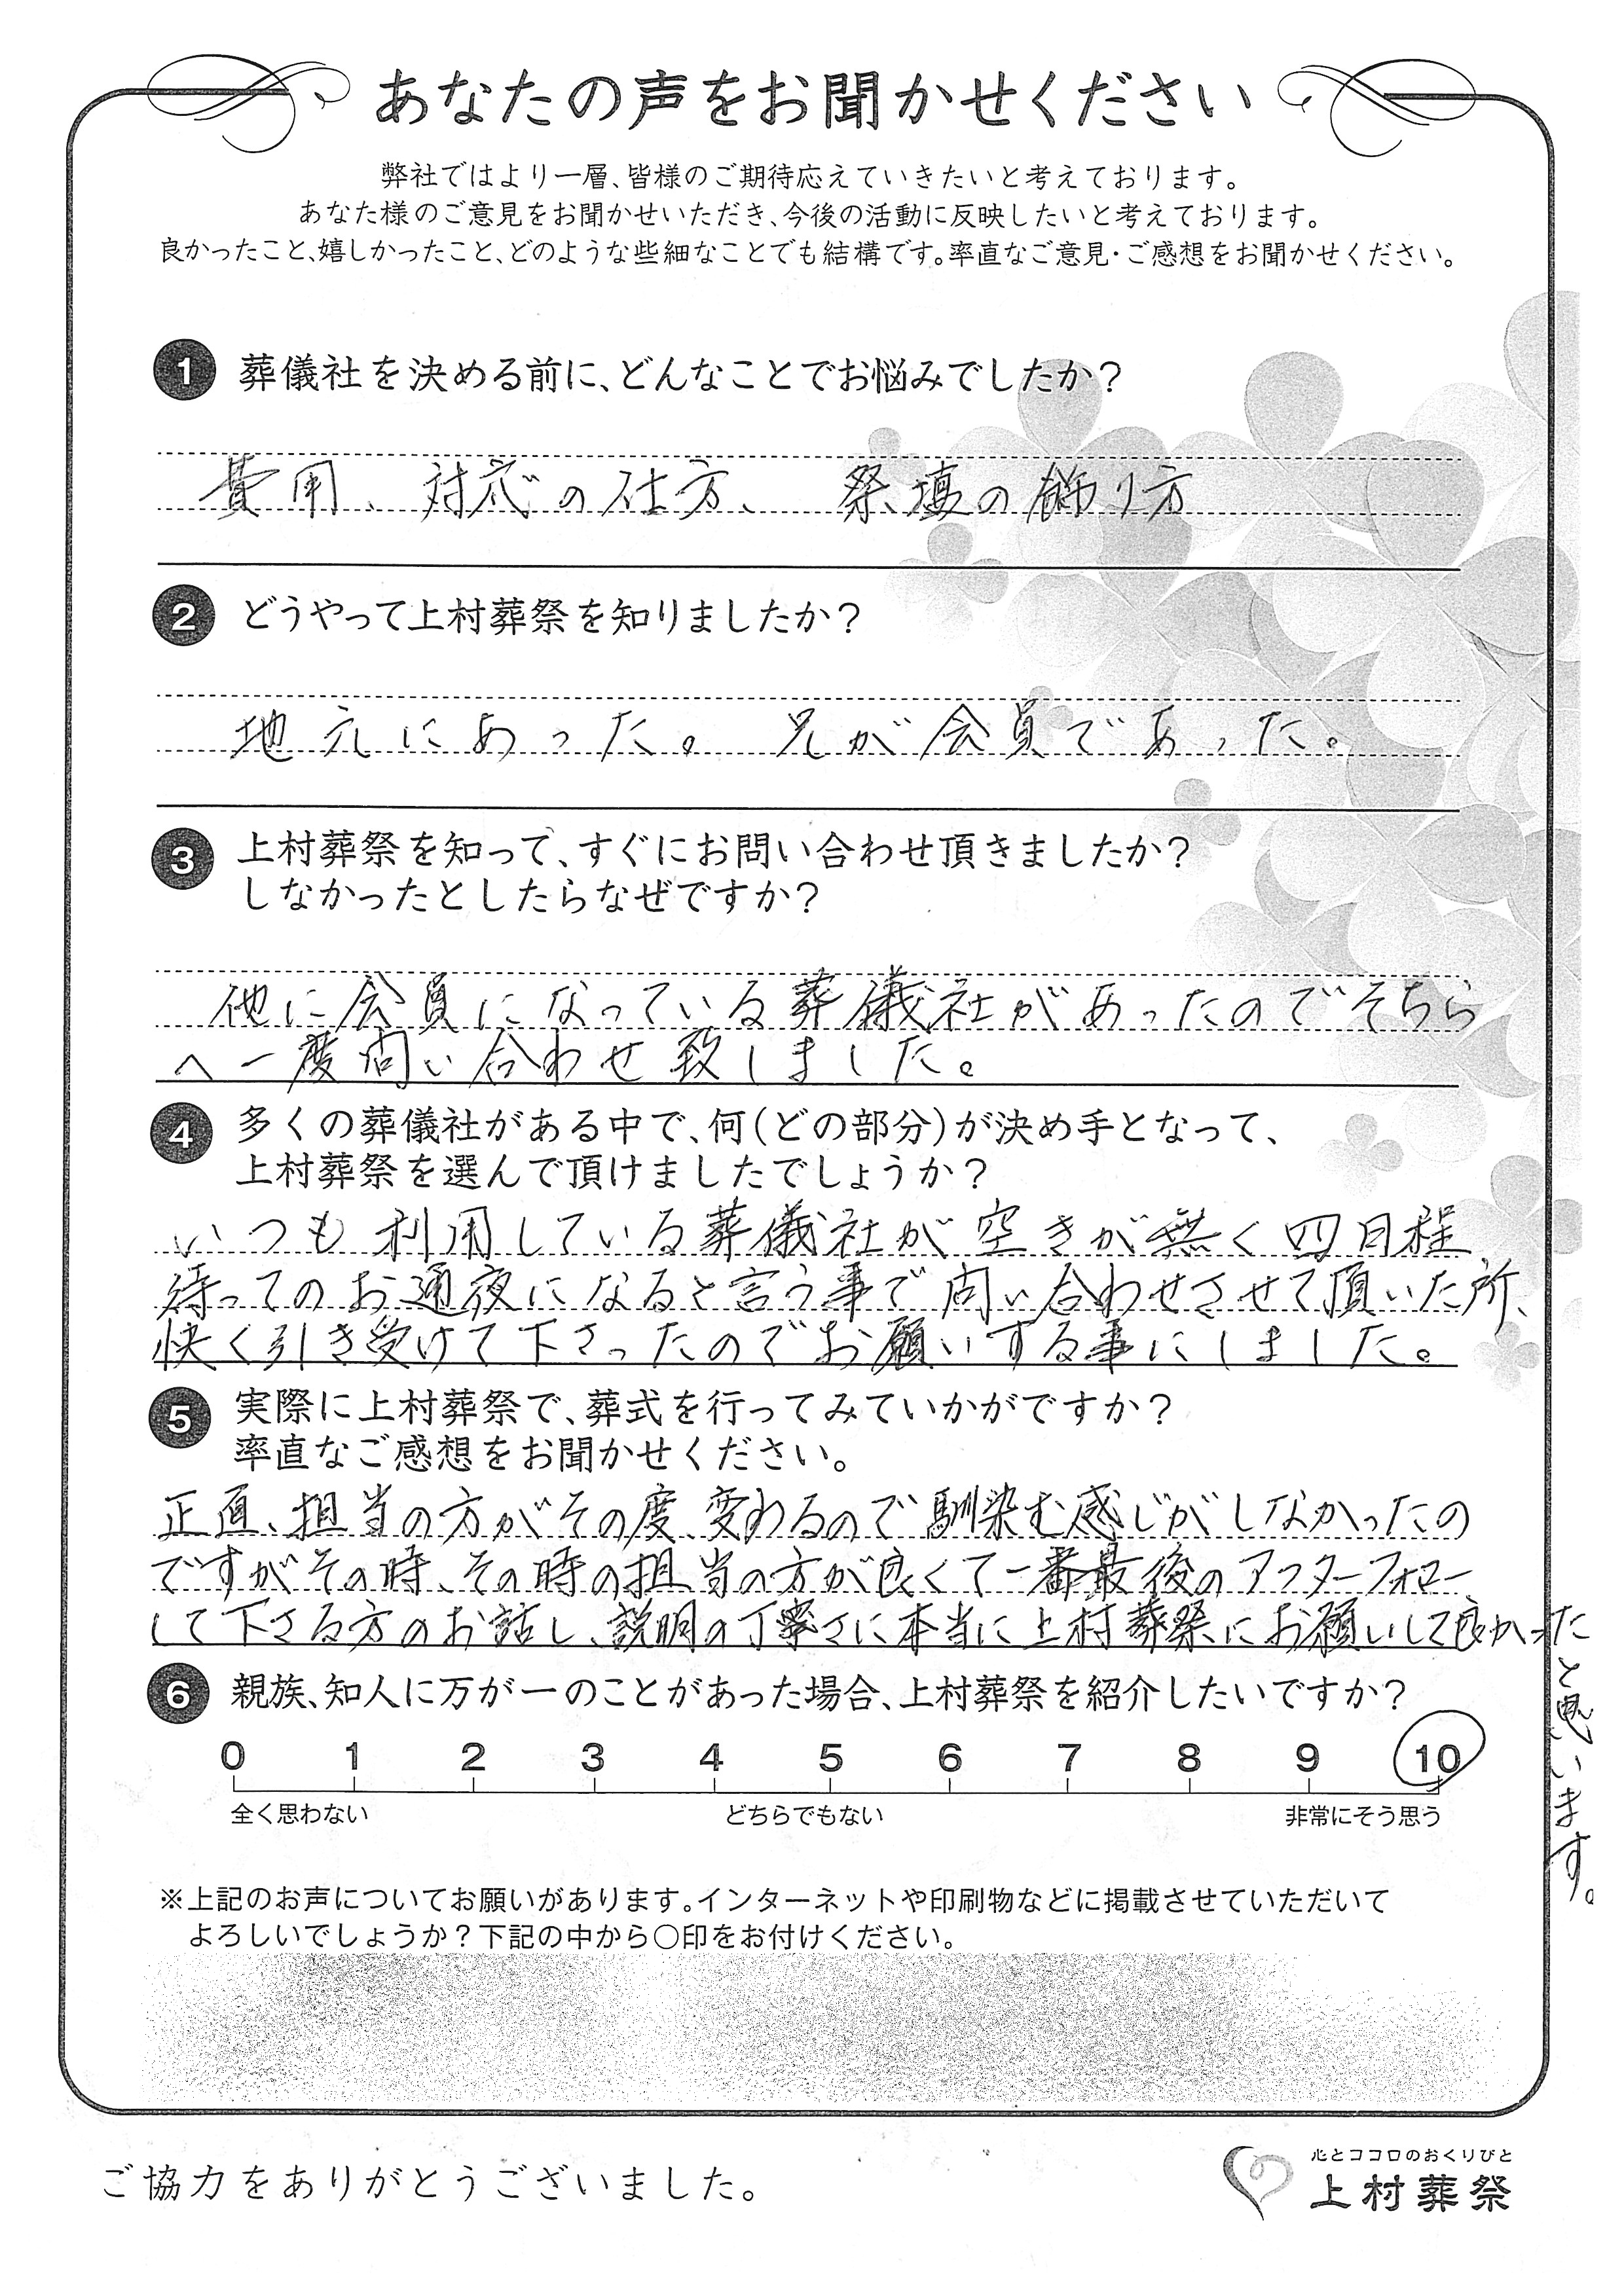 あなたの声をお聞かせください
弊社ではより一層、皆様のご期待応えていきたいと考えております。
あなた様のご意見をお聞かせいただき、今後の活動に反映したいと考えております。
良かったこと、嬉しかったこと、どのような些細なことでも結構です。率直なご意見・ご感想をお聞かせください。
1 葬儀社を決める前に、どんなことでお悩みでしたか?
費用、対応の仕方、祭壇の飾り方
2 どうやって上村葬祭を知りましたか?
地元にあった。兄が会員であった。
3 上村葬祭を知って、すぐにお問い合わせ頂きましたか?
しなかったとしたらなぜですか?
他に会員になっている葬儀社があったのでそちら
へ一度問い合わせ致しました。
4 多くの葬儀社がある中で、何(どの部分)が決め手となって、
上村葬祭を選んで頂けましたでしょうか?
いつも利用している葬儀社が空きが無く四日程
待ってのお通夜になると言う事で問い合わせさせて頂いた所、
快く引き受けて下さったのでお願いする事にしました。
5 実際に上村葬祭で、葬式を行ってみていかがですか?
率直なご感想をお聞かせください。
正直、担当の方がその度、変わるので馴染む感じがしなかったの
ですがその時、その時の担当の方が良くて一番最後のアフターフォロー
して下さる方のお話し、説明の丁寧さに本当に上村葬祭にお願いして良かった
と思います。
6 親族、知人に万が一のことがあった場合、上村葬祭を紹介したいですか?
0 1 2 3 4 5 6 7 8 9 10
全く思わない どちらでもない 非常にそう思う
※上記のお声についてお願いがあります。インターネットや印刷物などに掲載させていただいて
よろしいでしょうか?下記の中から○印をお付けください。
ご協力をありがとうございました。
心とココロのおくりびと
上村葬祭